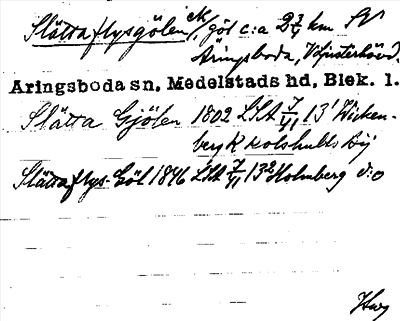 Slättaflysgölen ck, göl c:a 2 3/4 km SV
Aringsboda, V. Hjusterhövd.
Aringsboda sn, Medelstads hd, Blek. l.
Slätta Gjölen 1802 LSA 7/VI 13' Wicken-
berg K Rolshults By
Slättaflys-Göl 1846 LSA 7/VI 13² Holmberg d:o